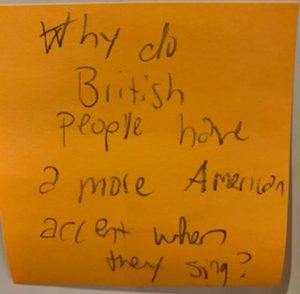 Why do
British
People have
a more American
accent when
they sing?